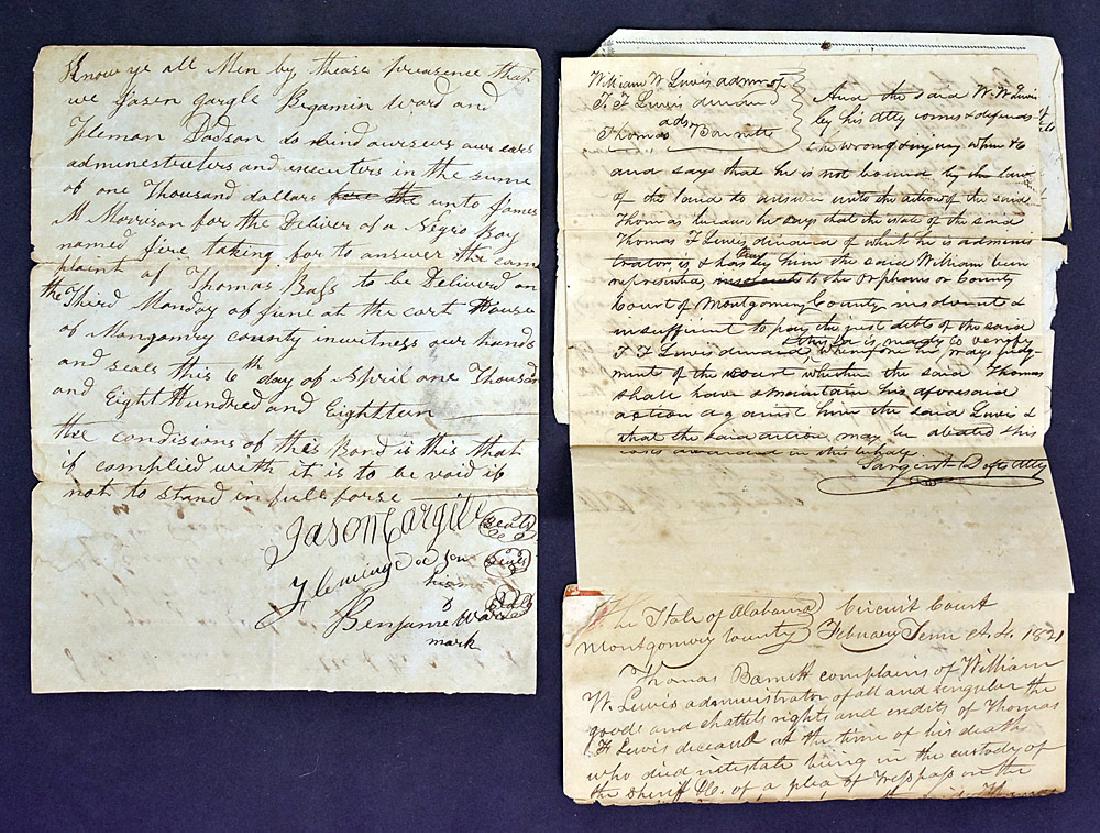 Know ye all Men by thease preasence that
we Jason Gargle Bengamin Ward and
Fleman Dodson do bind oursevs our eares
administreters and executers in the sume
of one Thousand dollars unto James
M Morrison for the Deliver of a Negro Boy
named Jere taking for to answer the com
plaint of Thomas Bass to be Deliverd on
the Third Monday of June at the cort House
of Mongomry county in witness our hands
and seals this 6th day of April one Thousand
and Eight Hundred and Eightteen
the condisions of this Bond is this that
if complied with it is to be void if
not to stand in full forse
Jason Cargile Seal
Fleming Seal
his
Benjamin Ward Seal
mark
William W Lewis admr of
T. F Lewis deceased
ads
Thomas Barnett
And the said W. W Lewis
by his atty comes & defends
the wrong & injury when &c
and says that he is not bound by the law
of the land to answer unto the action of the said
Thomas because he says that the estate of the said
Thomas F Lewis deceased of which he is adminis
trator, is & has by him the said William been
represented to the Orphans or County
Court of Montgomery County insolvent &
insufficient to pay the just debts of the said
T. F Lewis deceased, this he is ready to verify
Wherefore he prays judg-
ment of the court whether the said Thomas
shall have & maintain his aforesaid
action against him the said Lewis &
that the said action may be abated & his
costs awarded in this behalf.
Sargent Defts Atty
The State of Alabama Circuit Court
Montgomery County February Term A. D. 1821
Thomas Barnett complains of William
W. Lewis administrator of all and singular the
goods and chattels rights and credits of Thomas
F Lewis deceased at the time of his death
who died intestate being in the custody of
the Sheriff &c. of a plea of Tresspass on the